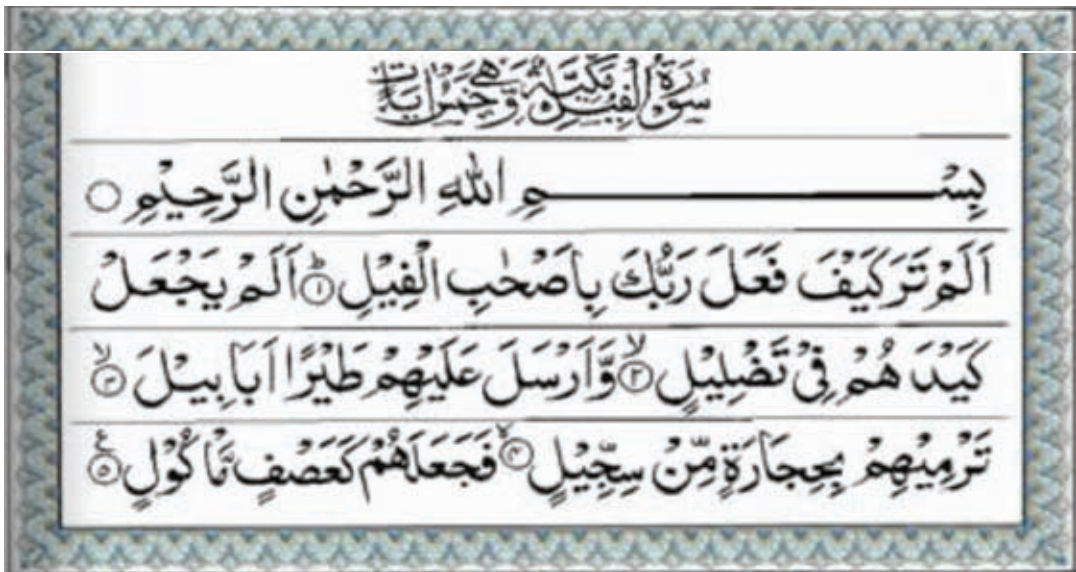 سُوْرَةُ الْفِيْلِ مَكِّيَّةٌ وَّهِيَ خَمْسُ اٰيَاتٍ
بِسْمِ اللهِ الرَّحْمٰنِ الرَّحِيْمِ ○
اَلَمْ تَرَ كَيْفَ فَعَلَ رَبُّكَ بِاَصْحٰبِ الْفِيْلِ ؕ﴿۱﴾ اَلَمْ يَجْعَلْ
كَيْدَهُمْ فِيْ تَضْلِيْلٍ ۙ﴿۲﴾ وَّاَرْسَلَ عَلَيْهِمْ طَيْرًا اَبَابِيْلَ ۙ﴿۳﴾
تَرْمِيْهِمْ بِحِجَارَةٍ مِّنْ سِجِّيْلٍ ۙ﴿۴﴾ فَجَعَلَهُمْ كَعَصْفٍ مَّاْكُوْلٍ ﴿۵﴾ ع